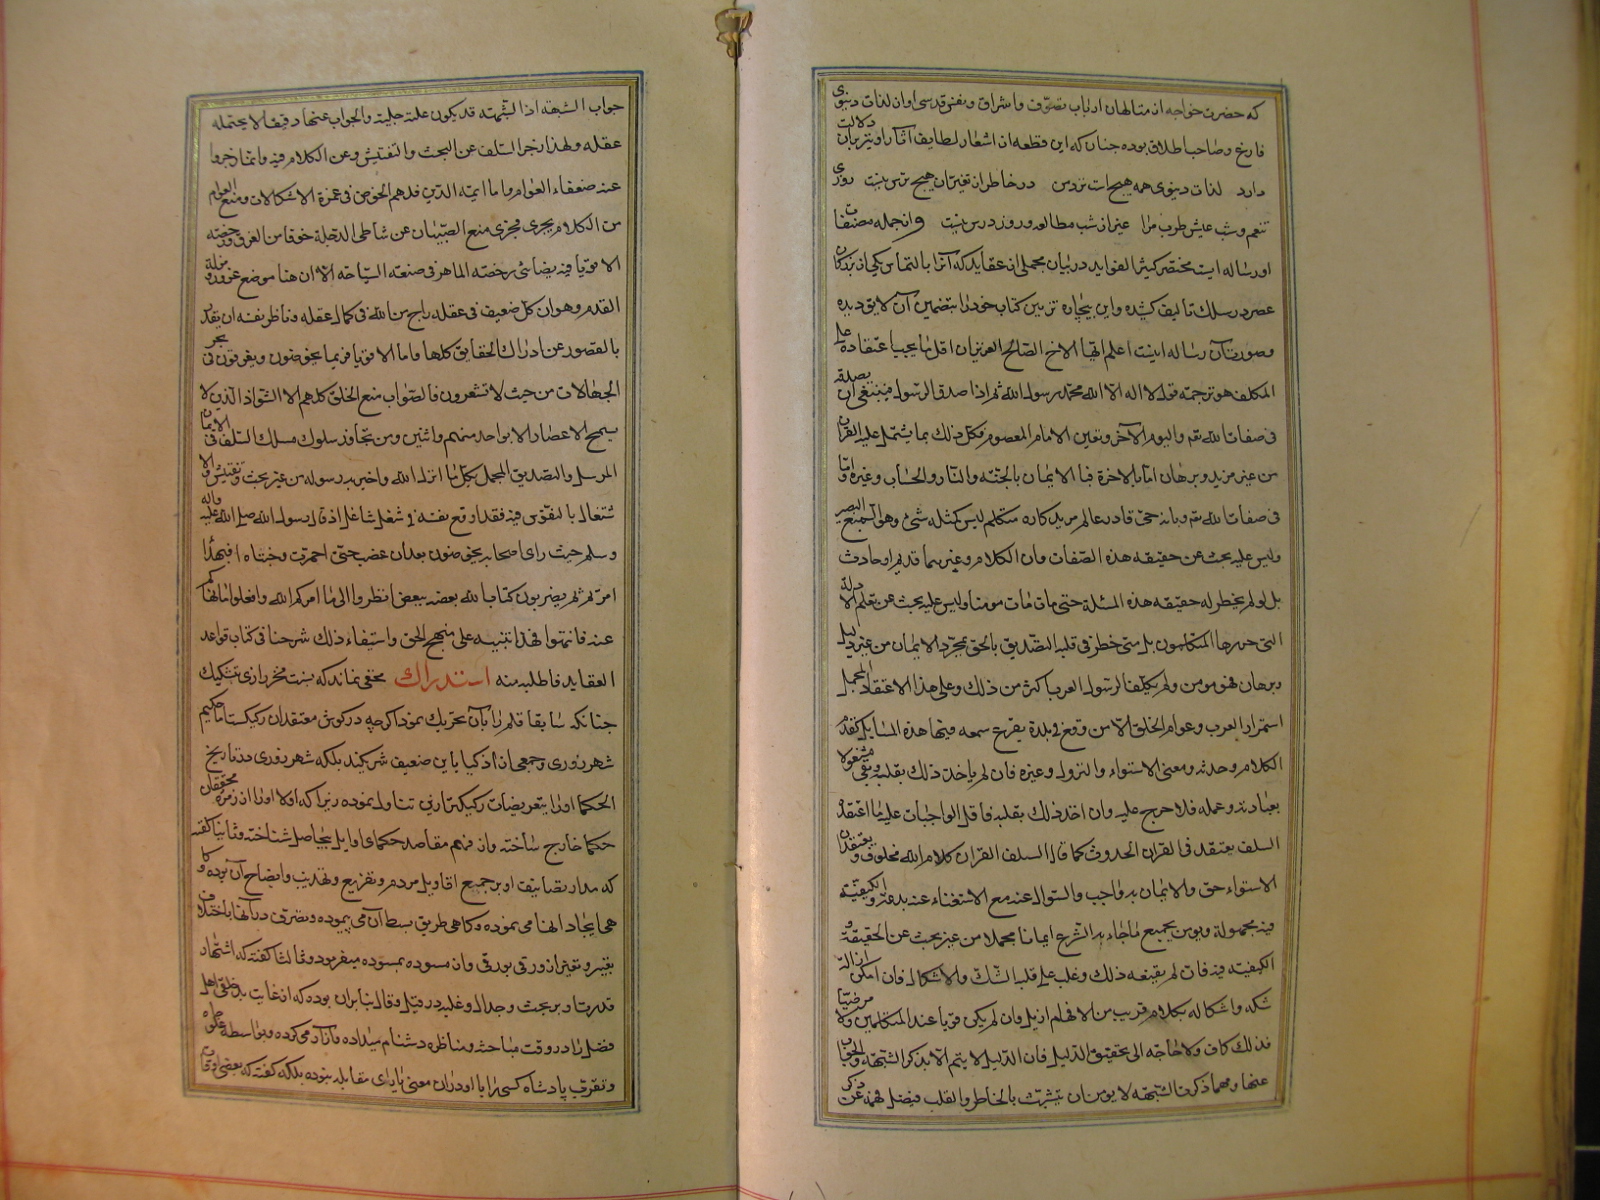 که حضرت خواجه از متالهان ارباب تصوف و اشراق و بنفس قدسی او از لذات دنیوی
فارغ و صاحب اطلاق بوده چنان که این قطعه از اشعار لطایف آثار او بر بران دلالت
دارد لذات دنیوی همه هیچ است نزد من در خاطر از تغیر آن هیچ ترس نیست روزی
تنعم و شب عیش طرب مرا غیر از شب مطالعه و روز درس نیست و از جمله مصنفات
او رساله ایست مختصر کثیر الفواید در بیان مجملی از عقاید که آنرا بالتماس یکی از بزرکان
عصر در سلک تالیف کشیده و این بیچاره تزیین کتاب خود را بتضمین آن لایق دیده
و صورت آن رساله اینست اعلم ایها الاخ الصالح العزیز ان اقل ما یجب اعتقاده علی
المکلف هو ترجمة قول لا اله الا الله محمد رسول الله ثم اذا صدق الرسول فینبغی ان یصدقه
فی صفات الله تعه والیوم الآخر وتعیین الامام المعصوم فکل ذلک بما یشتمل علیه القران
من غیر مزید وبرهان اما بالاخرة فبالایمان بالجنة والنار والحساب وغیره واما
فی صفات الله تعه وبانه حی قادر عالم مرید کاره متکلم لیس کمثله شیء وهو السمیع البصیر
ولیس علیه بحث عن حقیقه هذه الصفات وان الکلام وغیرهما قدیم او حادث
بل لو لم یخطر له حقیقه هذه المسئلة حتی مات مات مومنا ولیس علیه بحث عن تعلم الادلة
التی حررها المتکلمون بل متی خطر فی قلبه التصدیق بالحق بمجرد الایمان من غیر دلیل
وبرهان فهو مومن ولم یکلف الرسول العرب باکثر من ذلک وعلی هذا الاعتقاد المجمل
استمرار العرب وعوام الخلق الا من وقع فی بلدة یقرع سمعه فیها هذه المسایل کقدم
الکلام وحدثه ومعنی الاستواء والنزول وغیره فان لم یاخذ ذلک بقلبه وبقی مشغولا
بعبادته وعمله فلا حرج علیه وان اخذ ذلک بقلبه فاقل الواجبات علیه ما اعتقده
السلف یعتقد فی القران الحدوث کما قال السلف القران کلام الله مخلوق ویعتقد ان
الاستواء حق والایمان به واجب والسؤال عنه مع الاستغناء عنه بدعة والکیفیة
فیه مجهولة ویومن بجمیع ما جاء به الشرع ایمانا مجملا من غیر بحث عن الحقیقة و
الکیفیة فیه فان لم یقنعه ذلک وغلب علی قلبه الشک والاشکال فان امکن ازالة
شکه واشکاله بکلام قریب من الافهام ازیل وان لم یکن قویا عند المتکلمین ولا مرضیا
فذلک کاف ولا حاجة الی تحقیق الدلیل فان الدلیل لا یتم الا بذکر الشبهة والجواب
عنها ومهما ذکرت الشبهة لا یومن ان یتشبث بالخاطر والقلب فیضل فهمه عن درک
جواب الشبهة اذ الشبهة قد یکون علمته جلیة والجواب عنها دقیقا لا یحتمله
عقله ولهذا زجر السلف عن البحث والتفتیش وعن الکلام فیه وانما زجروا
عنه ضعفاء العوام واما ایمه الدین فلهم الخوض فی غمرة الاشکالات ومنع العوام
من الکلام یجری مجری منع الصبیان عن شاطی الدجلة خوفا من الغرق ورخصة
الاقویا فیه یضاهی رخصة الماهر فی صنعة السباحة الا ان هنا موضع غرور ومزلة
القدم وهو ان کل ضعیف فی عقله راج من الله فی کمال عقله وناظر نفسه ان یقدر
بالقصور عن ادراک الحقایق کلها واما الاقویا فربما یخوضون ویغرقون فی بحر
الجهالات من حیث لا تشعرون فالصواب منع الخلق کلهم الا الشواذ الذین لا
یسمح الاعصار الا بواحد منهم واثنین ومن تجاوز سلوک مسلک السلف فی الایمان
المرسل والتصدیق المجمل بکل ما انزل الله واخبر به رسوله من غیر بحث وتفتیش والا
شتغال بالتقوی فیه فقد اوقع نفسه فی شغل شاغل اذ قال رسول الله صلی الله علیه واله
وسلم حیث رای اصحابه یخوضون بعد ان غضب حتی احمرت وجنتاه افبهذا
امرتم تضربون کتاب الله بعضه ببعض انظروا الی ما امرکم الله وافعلوا ما نهاکم
عنه فانتهوا فهذا تنبیه علی منهج الحق واستیفاء ذلک شرحنا فی کتاب قواعد
العقاید فاطلبه منه استدراک مخفی نماند که نسبت فخر رازی بتشکیک
چنانکه سابقا قلم را بآن تحریک نمود اکرچه در کوش معتقدان رکیکست اما حکیم
شهرزوری و جمعی از اذکیا باین ضعیف شریکند بلکه شهرزوری در تاریخ
الحکما اورا بتعریضات رکیکتر ازین تناول نموده زیرا که اولا اورا از زمره محققان
حکما خارج ساخته و از فهم مقاصد حکمای اوایل بیحاصل شناخته و ثانیا کفته
که مدار تصانیف او بر جمیع اقاویل مردم و تفریع و تهذیب و ایضاح آن بوده و کا
هی ایجاد انها می نموده و کاهی طریق بسط آن می پیموده و تصرف در آنها باختلاف
تغییر و تغیر از ورقی بورقی و از مسوده بمسوده میفرمود و ثالثا کفته که اشتهار
قدرت او بر بحث و جدال و غلبه در قیل و قال بنابران بوده که از غایت بدخلقی اهل
فضل را در وقت مباحثه و مناظره دشنام میداده و آزار می کرده و بواسطه علو جاه
و تقرب پادشاه کسی را با او در آن معنی یارای مقابله نبوده بلکه کفته که بعضی اوقات